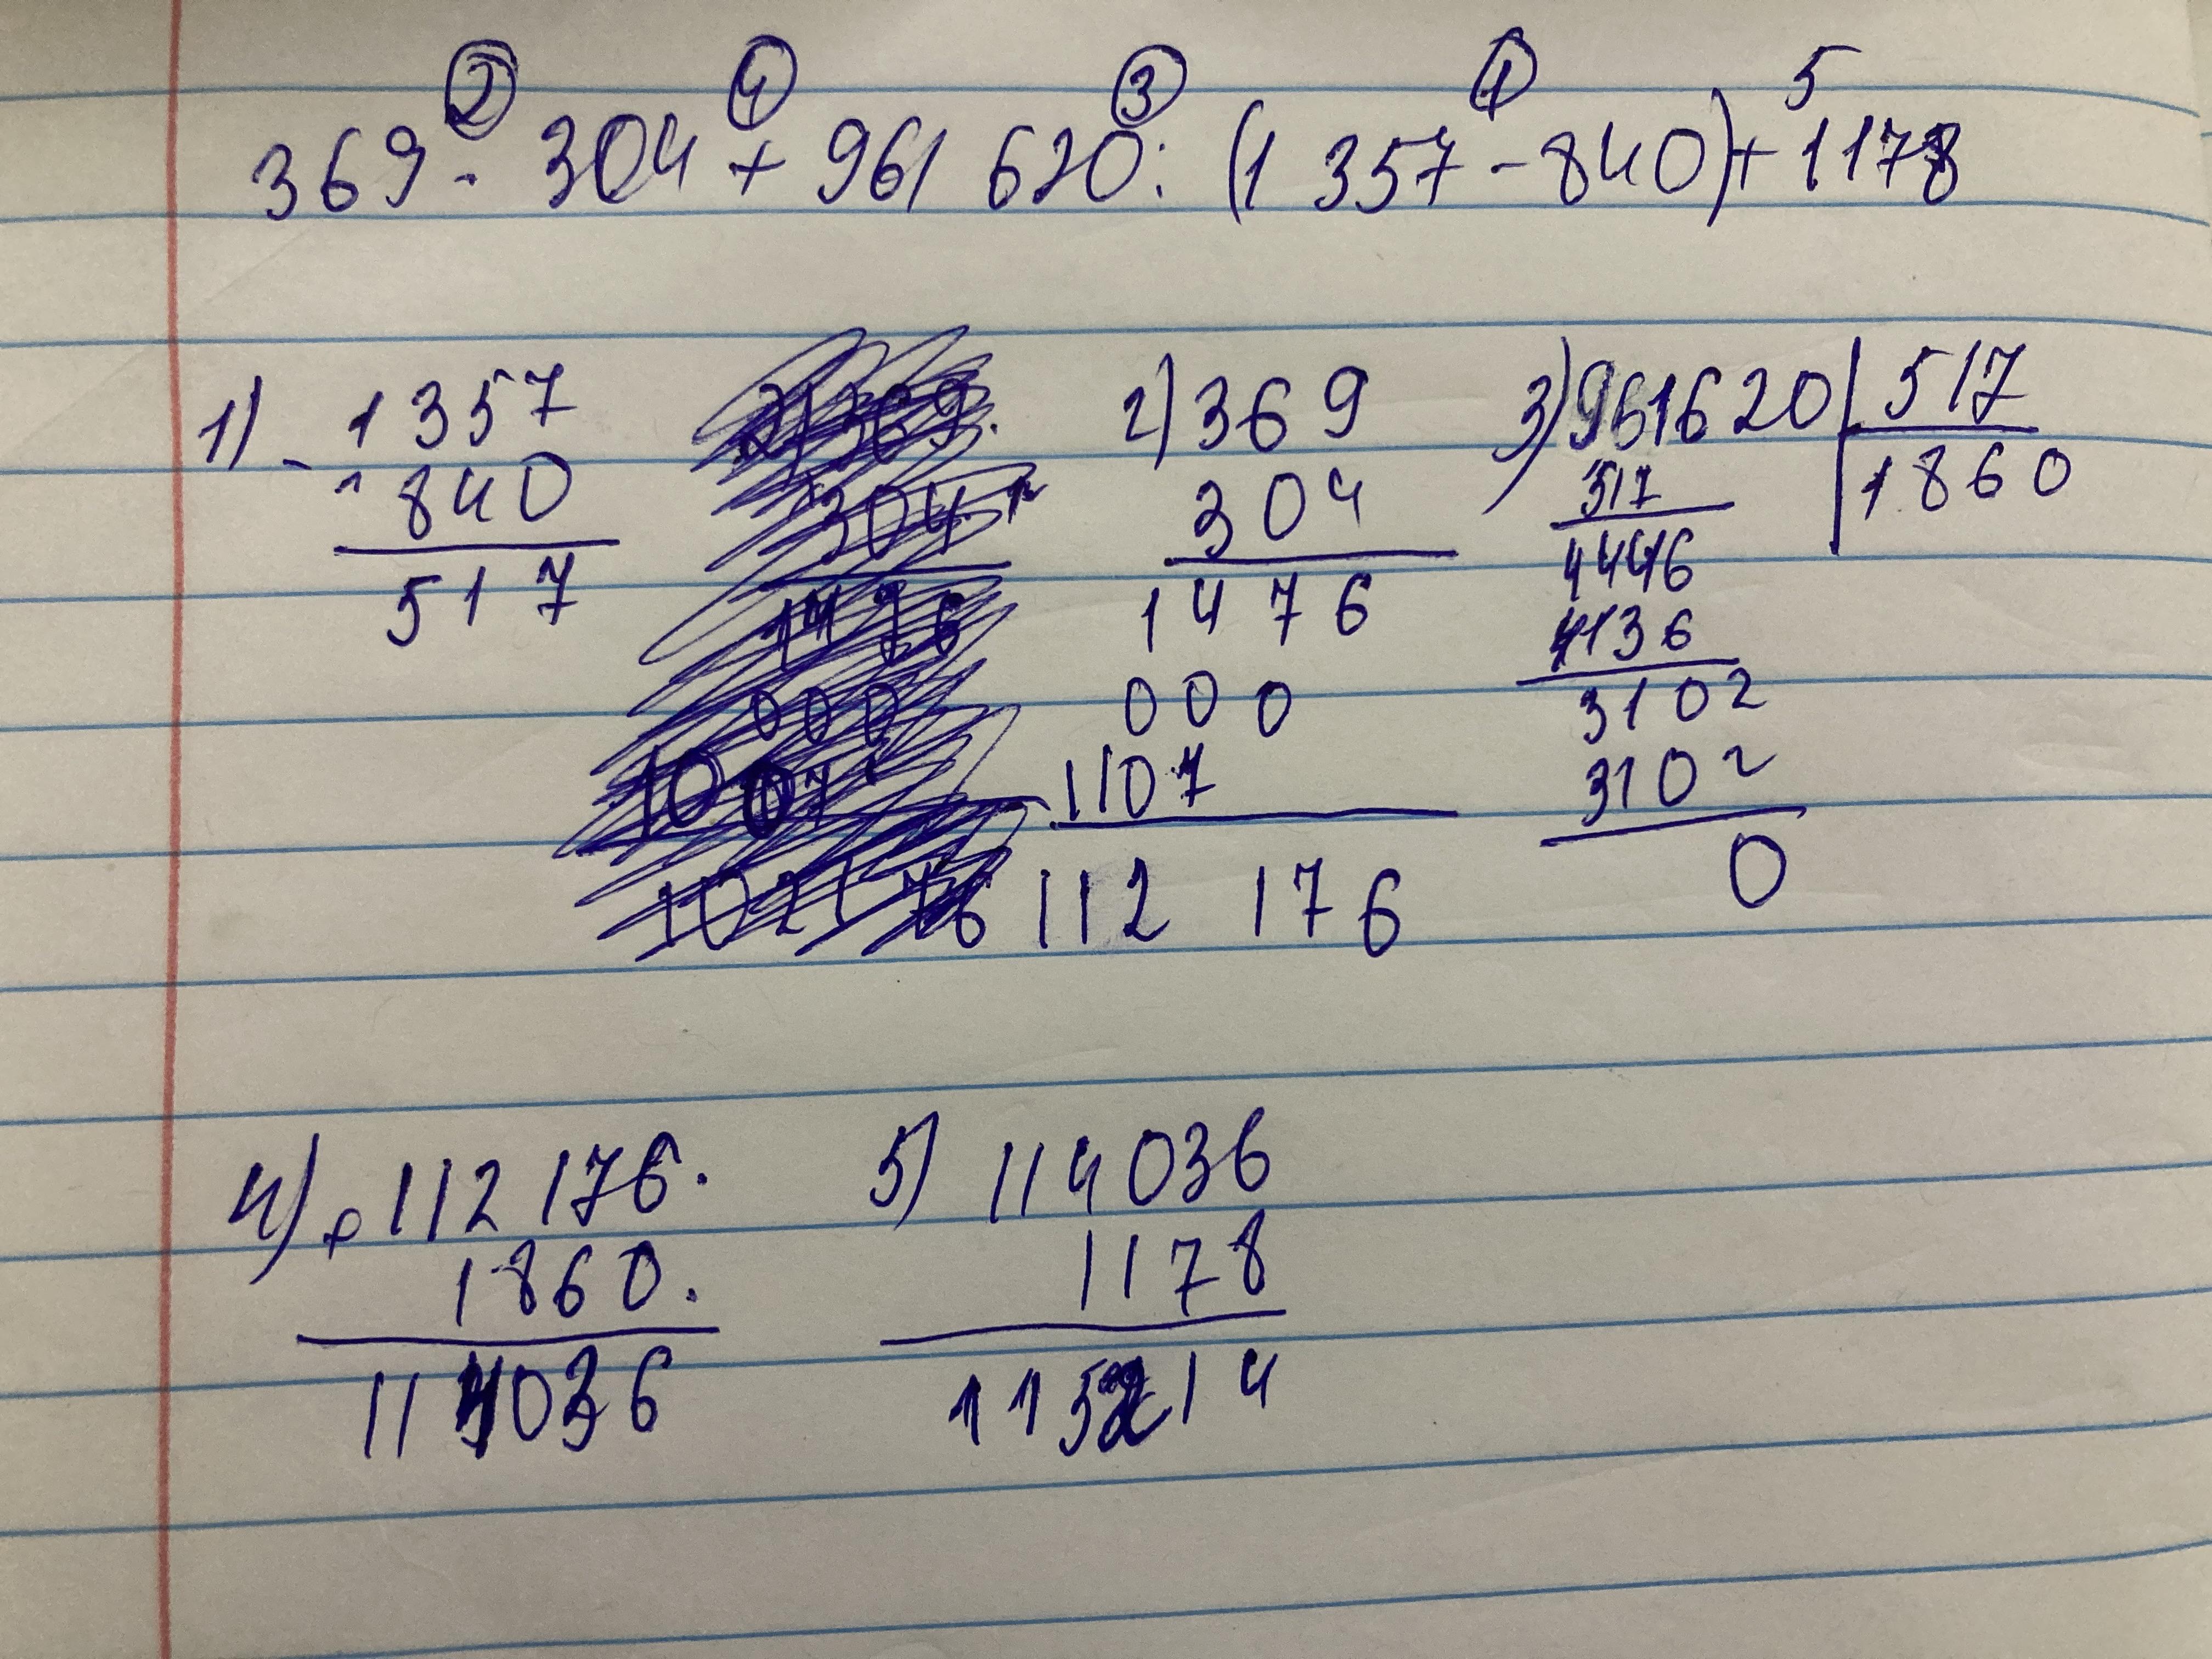 2 4 3 1 5
369 · 304 + 961 620 : (1 357 - 840) + 1178
1) - 1357
840
517
2) 369
304
1476
000
1107
112 176
3) 961620 | 517
1860
517
4446
4136
3102
3102
0
4) + 112 176.
1860.
114036
5) 114036
1178
115214